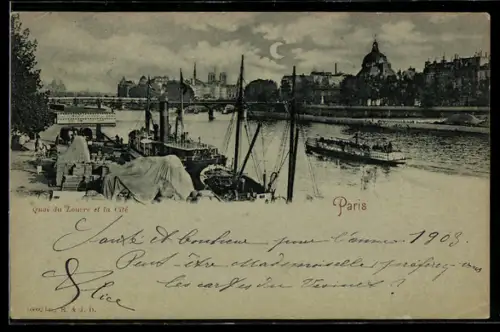 Quai du Louvre et la Cité
Paris
Santé et bonheur pour l'année 1903
Peut-être Mademoiselle, préférez-vous
les cartes du
Alice